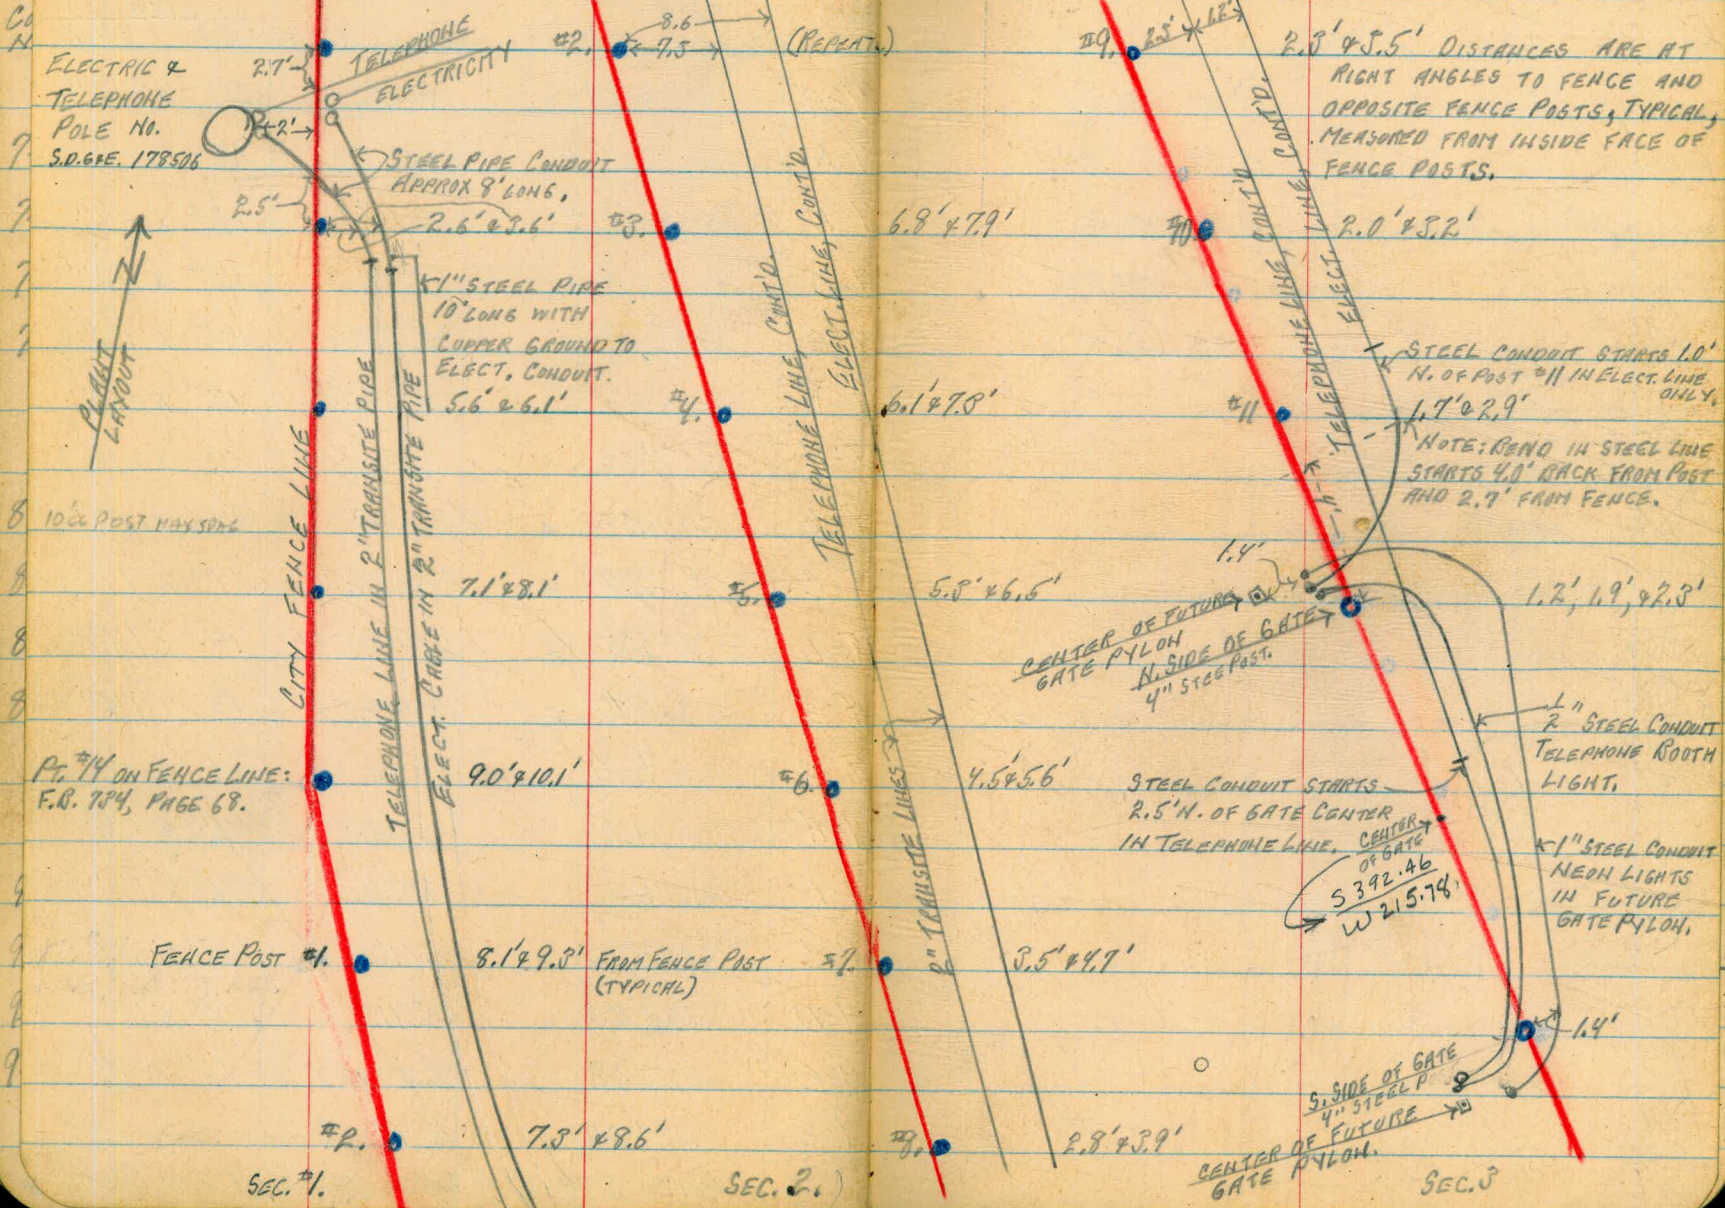 Co
N
7
7
7
7
8
8
8
8
9
9
9
9
ELECTRIC &
TELEPHONE
POLE NO.
S.D.G&E. 178506
2.7'
TELEPHONE
ELECTRICITY
2'
STEEL PIPE CONDUIT
APPROX 8' LONG.
2.5'
2.6' & 3.6'
1" STEEL PIPE
10' LONG WITH
COPPER GROUND TO
ELECT. CONDUIT.
5.6' & 6.1'
PLANT
LAYOUT
N
10' POST MAX
CITY FENCE LINE
TELEPHONE LINE IN 2" TRANSITE PIPE
ELECT. CABLE IN 2" TRANSITE PIPE
7.1' & 8.1'
PT. #14 ON FENCE LINE:
F.B. 784, PAGE 68.
9.0' & 10.1'
FENCE POST #1.
8.1' & 9.3' FROM FENCE POST
(TYPICAL)
#2.
7.3' & 8.6'
SEC. #1.
#2.
8.6
7.3
(REPEAT.)
#3.
6.8' & 7.9'
TELEPHONE LINE, CONT'D.
ELECT. LINE, CONT'D.
#4.
6.1' & 7.3'
#5.
5.3' & 6.5'
#6.
4.5' & 5.6'
2" TRANSITE LINES
#7.
3.5' & 4.7'
#8.
2.8' & 3.9'
SEC. 2.
#9.
2.3'
1.2'
2.3' & 3.5' DISTANCES ARE AT
RIGHT ANGLES TO FENCE AND
OPPOSITE FENCE POSTS, TYPICAL,
MEASURED FROM INSIDE FACE OF
FENCE POSTS.
#10.
2.0' & 3.2'
TELEPHONE LINE, CONT'D
ELECT. LINE, CONT'D.
STEEL CONDUIT STARTS 1.0'
N. OF POST #11 IN ELECT. LINE
ONLY.
#11
1.7' & 2.9'
NOTE: BEND IN STEEL LINE
STARTS 4.0' BACK FROM POST
AND 2.7' FROM FENCE.
4'
1.4'
CENTER OF FUTURE
GATE PYLON
N. SIDE OF GATE
4" STEEL POST.
1.2', 1.9', & 2.3'
1/2" STEEL CONDUIT
TELEPHONE BOOTH
LIGHT.
STEEL CONDUIT STARTS
2.5' N. OF GATE CENTER
IN TELEPHONE LINE.
CENTER
OF GATE
S 392.46
W 215.78
1" STEEL CONDUIT
NEON LIGHTS
IN FUTURE
GATE PYLON.
1.4'
S. SIDE OF GATE
4" STEEL
CENTER OF FUTURE
GATE PYLON.
SEC. 3